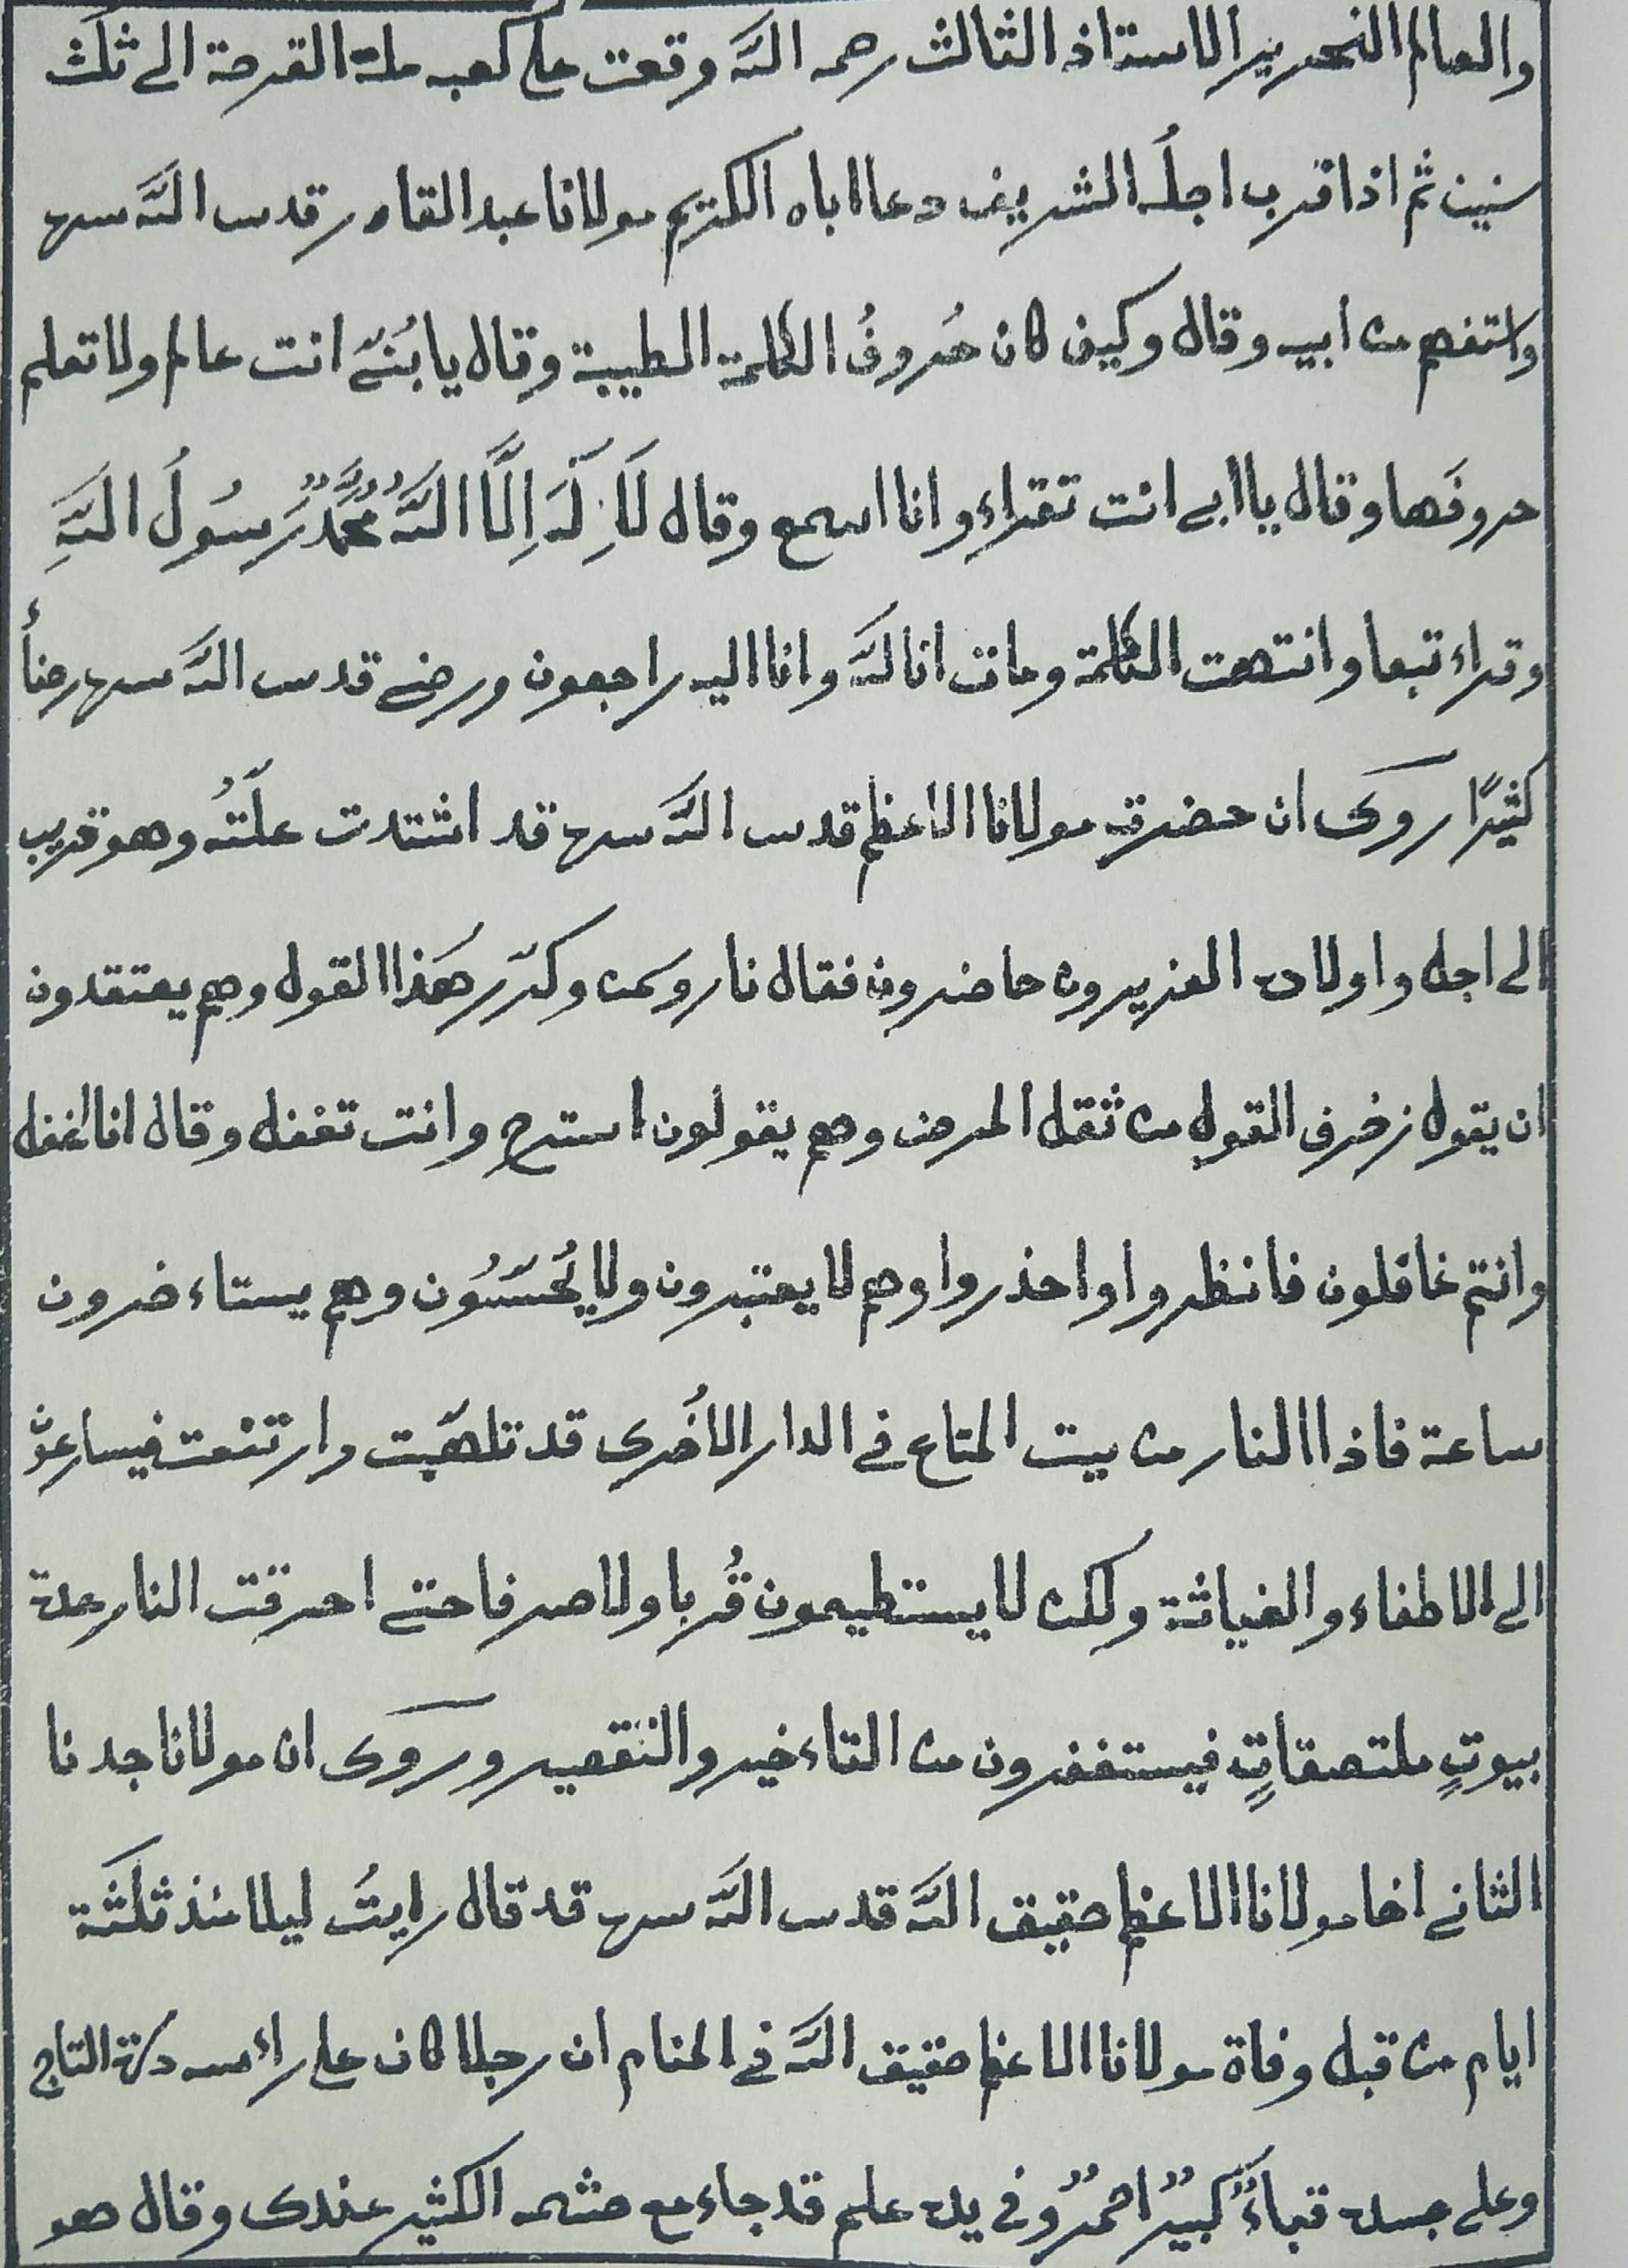 والعالم النحرير الاستاذ الثالث رحمه اللّٰه وقعت على كعبه علة القرحة الى ثلٰث
سنين ثم اذا قرب اجلُه الشريف دعا اباه الكريم مولانا عبد القادر قدس اللّٰه سره
واستفهم من ابيه وقال وكيف كان حُروفُ الكلمة الطيبة وقال يا بُنَيّ انت عالم ولا تعلم
حروفَها وقال يا ابى انت تقراء وانا اسمع وقال لَا اِلٰهَ اِلَّا اللّٰهُ مُحَمَّدٌ رَسُولُ اللّٰهِ
وقراء تبعا وانتهت الكلمة ومات انا للّٰه وانا اليه راجعون ورضى قدس اللّٰه سره رضاً
كثيرًا روى ان حضرت مولانا الاعظم قدس اللّٰه سره قد اشتدت علّتُه وهو قريب
الى اجله واولاده العزيرون حاضرون فقال نا روسن وكرّر هٰذا القول وهم يعتقدون
ان يقول زخرف القول من ثقل المرض وهم يقولون استرح وانت تغفل وقال انا اغفل
وانتم غافلون فانظروا واحذروا وهم لا يعتبرون ولا يُحسّسُون وهم يستاءخرون
ساعة فاذا النار من بيت المتاع فى الدار الأخرى قد تلهّبت وارتفعت فيسارعون
الى الاطفاء والغياثة ولكن لا يستطيعون قُربا ولا صرفا حتى احرقت النار عدة
بيوتٍ ملتصقاتٍ فيستغفرون من التاءخير والتقصير وروى ان مولانا جدنا
الثانى اخا مولانا الاعظم حقيق اللّٰه قدس اللّٰه سره قد قال رايتُ ليلا منذ ثلٰثة
ايام من قبل وفاة مولانا الاعظم حقيق اللّٰه فى المنام ان رجلا كان على راءسه درة التاج
وعلى جسده قباءٌ كبيرٌ احمرُ وفى يده علم قد جاء مع حشمه الكثير عندى وقال هو